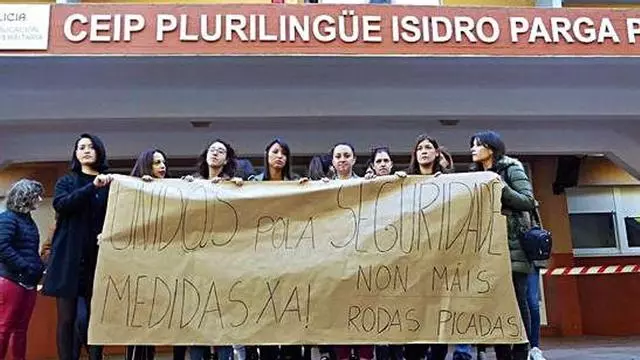 CEIP PLURILINGÜE ISIDRO PARGA P
UNIDOS POLA SEGURIDADE
MEDIDAS XA!
NON MÁIS
RODAS PICADAS